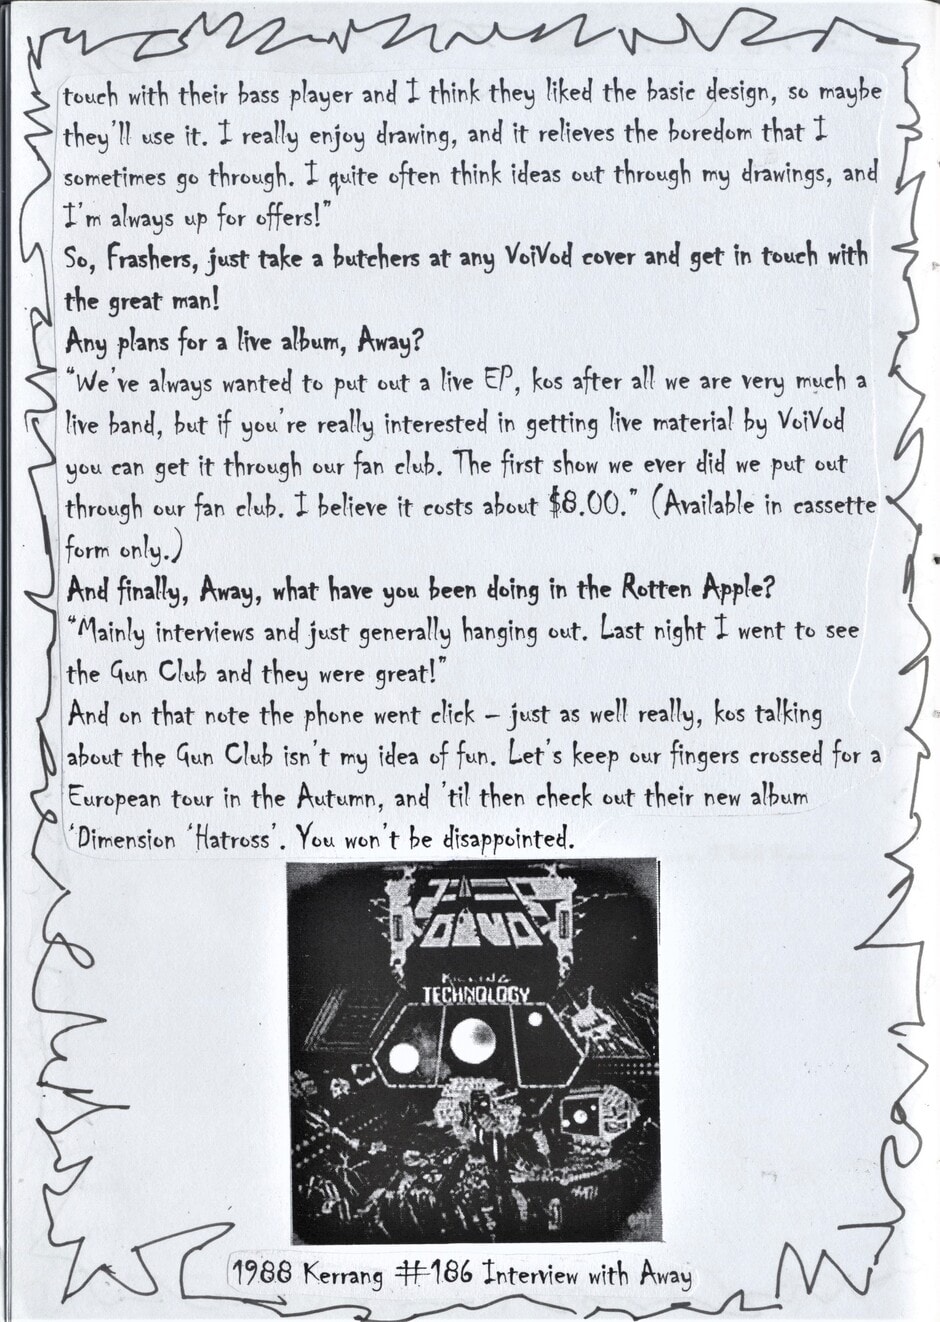 touch with their bass player and I think they liked the basic design, so maybe
they'll use it. I really enjoy drawing, and it relieves the boredom that I
sometimes go through. I quite often think ideas out through my drawings, and
I'm always up for offers!"
So, Frashers, just take a butchers at any VoiVod cover and get in touch with
the great man!
Any plans for a live album, Away?
"We've always wanted to put out a live EP, kos after all we are very much a
live band, but if you're really interested in getting live material by VoiVod
you can get it through our fan club. The first show we ever did we put out
through our fan club. I believe it costs about $8.00." (Available in cassette
form only.)
And finally, Away, what have you been doing in the Rotten Apple?
"Mainly interviews and just generally hanging out. Last night I went to see
the Gun Club and they were great!"
And on that note the phone went click – just as well really, kos talking
about the Gun Club isn't my idea of fun. Let's keep our fingers crossed for a
European tour in the Autumn, and 'til then check out their new album
'Dimension 'Hatross'. You won't be disappointed.
KILLING
TECHNOLOGY
1988 Kerrang #186 Interview with Away